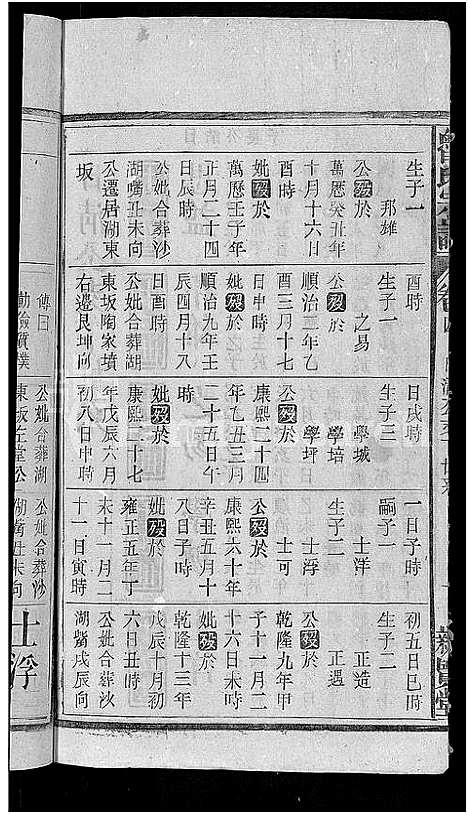 生子一
邦雄
公殁於
萬歷癸丑年
十月十六日
酉時
妣殁於
萬歷壬子年
正月二十四
日辰時
公妣合葬沙
湖嘴丑未向
公遷居湖東
坂
酉時
生子一
之易
公殁於
順治二年乙
酉三月十七
日申時
妣殁於
順治九年壬
辰四月十八
日酉時
公妣合葬湖
東坂陶家墳
右邊艮坤向
日戌時
生子三
學城
學培
學坪
公殁於
康熙二十四
年乙丑三月
二十五日午
時
妣殁於
康熙二十七
年戊辰六月
初八日申時
一日子時
嗣子一
士洋
生子二
士浮
士可
公殁於
康熙六十年
辛丑五月十
八日子時
妣殁於
雍正五年丁
未十一月二
十一日寅時
初五日巳時
生子二
正造
正遇
公殁於
乾隆九年甲
子十一月二
十六日未時
妣殁於
乾隆十三年
戊辰十月初
六日丑時
公妣合葬沙
湖嘴戌辰向
傳曰
勤儉質樸
公妣合葬湖
東坂左堂公
公妣合葬沙
湖嘴丑未向
士浮